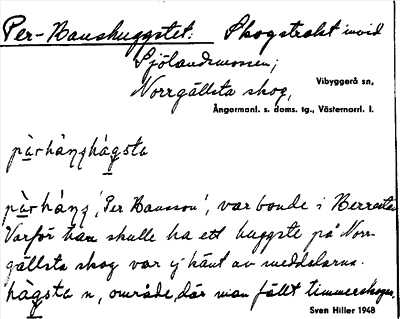 Per-Hanshuggstet: Skogstrakt invid
Sjölandsmossen;
Norrgällsta skog,
Vibyggerå sn,
Ångermanl. s. doms. tg., Västernorrl. l.
pàrhànshàgsta
pàrhàns, 'Per Hansson', var bonde i Herresta
Varför han skulle ha ett huggste på Norr-
gällsta skog var ej känt av meddelarna.
hàgsta n, område, där man fällt timmerskogen.
Sven Hiller 1948